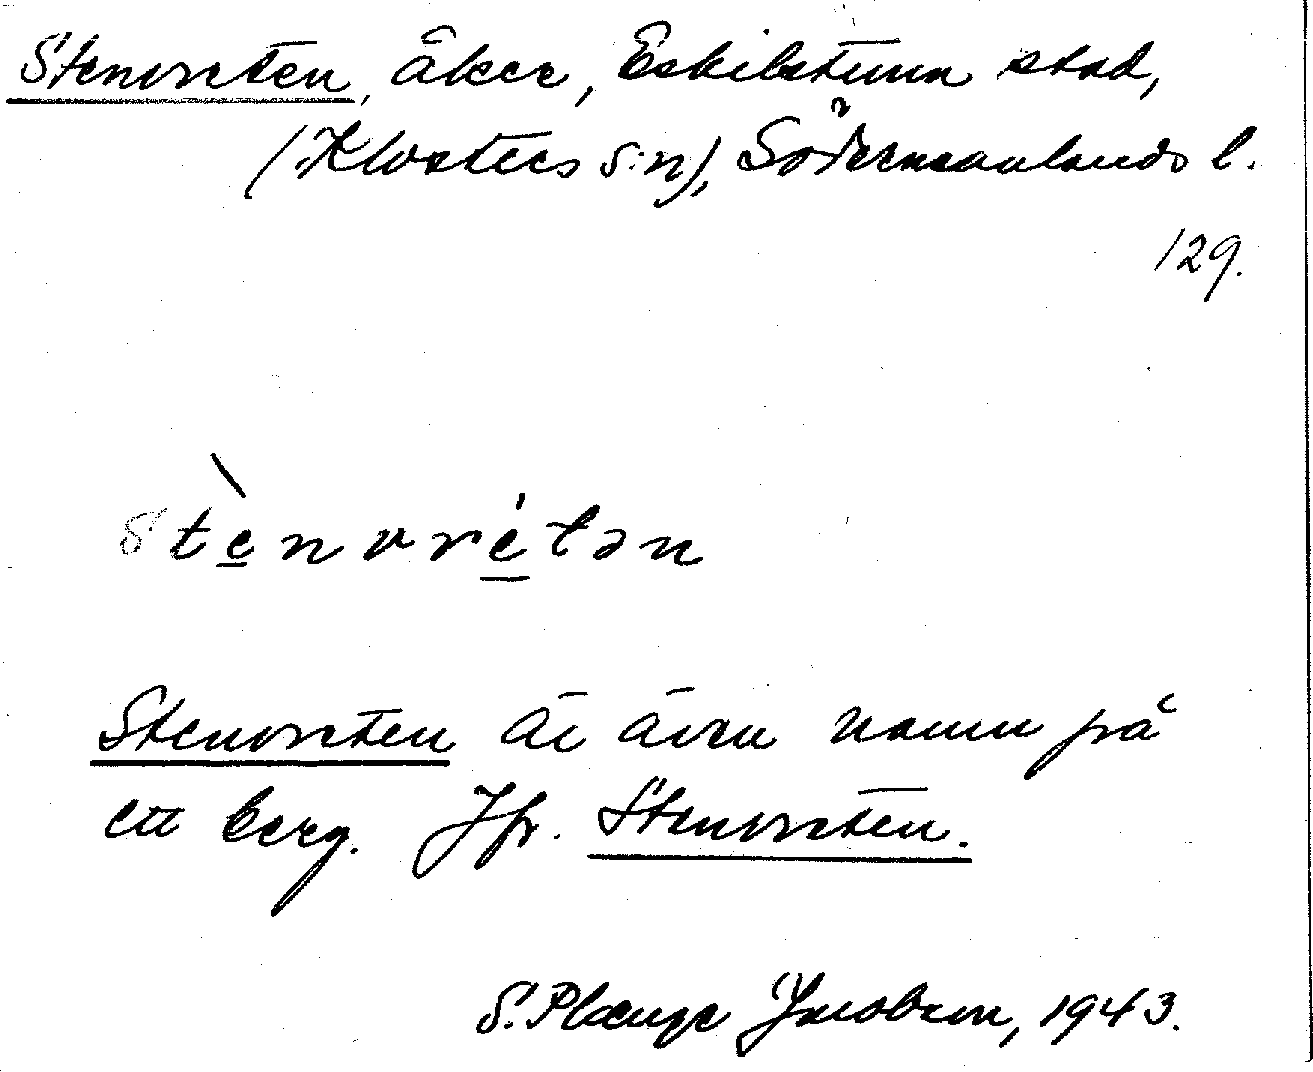 Stenvreten, åker, Eskilstuna stad,
(Klosters s:n), Södermanlands l.
129.
stènvrétən
Stenvreten är även namn på
ett berg. Jfr. Stenvreten.
S. Plænge Jacobson, 1943.